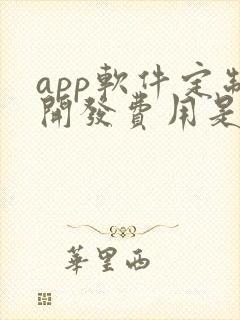 app軟件定制
開發費用是
華里西